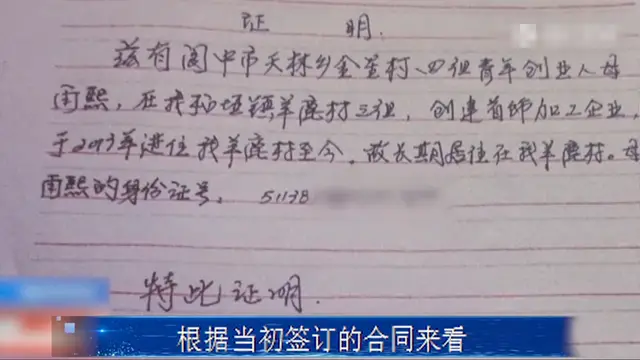 证 明.
兹有阆中市天林乡金星村、四组青年创业人母
雨熙，在我私垭镇羊鹿村三组，创建首饰加工企业，
于2013年进住我羊鹿村至今。故长期居住在我羊鹿村。母
雨熙的身份证号： 51138
特此证明.
根据当初签订的合同来看